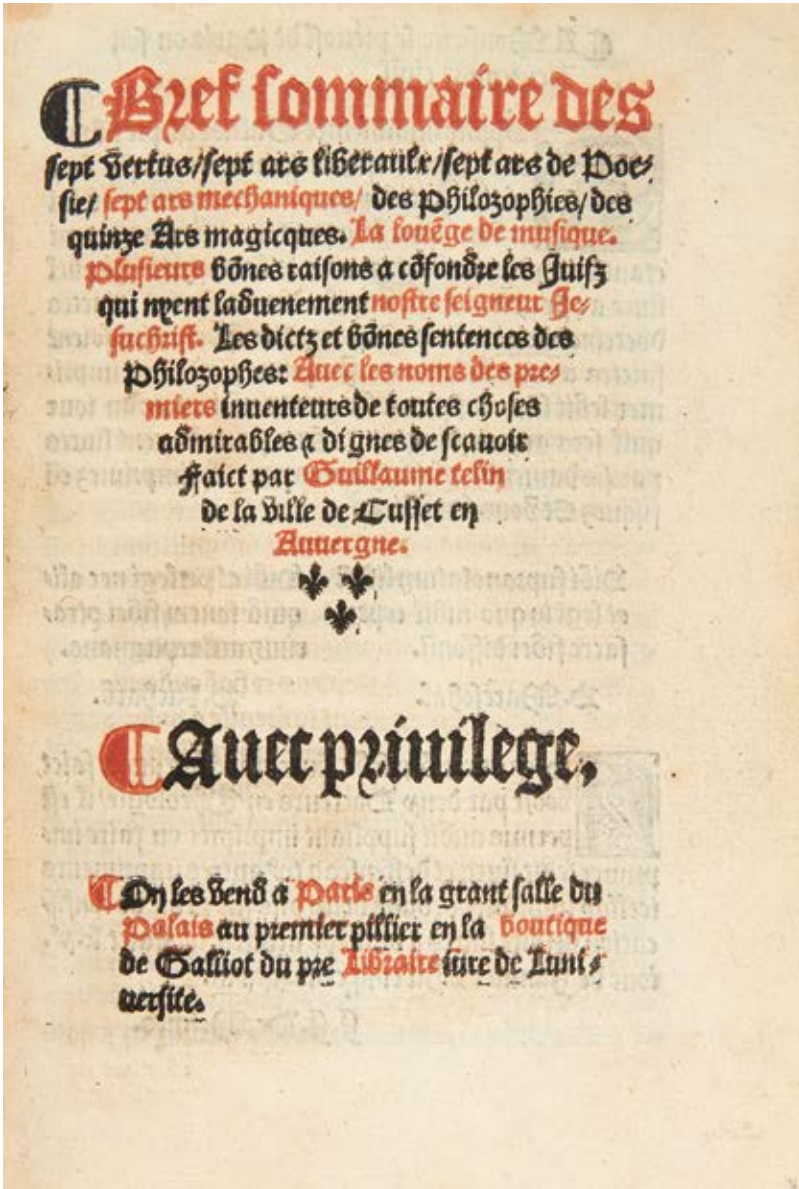 ⁋Bref sommaire des
sept vertus/sept ars liberaulx/sept ars de Poe⸗
sie/ sept ars mechaniques/ des Philozophies/ des
quinze Ars magicques. La louẽge de musique.
Plusieurs bõnes raisons a cõfondre les Juifz
qui nyent laduenement nostre seigneur Je⸗
suchrist. Les dictz et bõnes sentences des
Philozophes: Auec les noms des pre⸗
miers inuenteurs de toutes choses
admirables ⁊ dignes de scauoir
Faict par Guillaume telin
de la ville de Cusset en
Auuergne.
⁋Auec priuilege,
⁋On les vend a Paris en la grant salle du
Palais au premier pillier en la boutique
de Galliot du pre Libraire iure de Luni⸗
uersite.